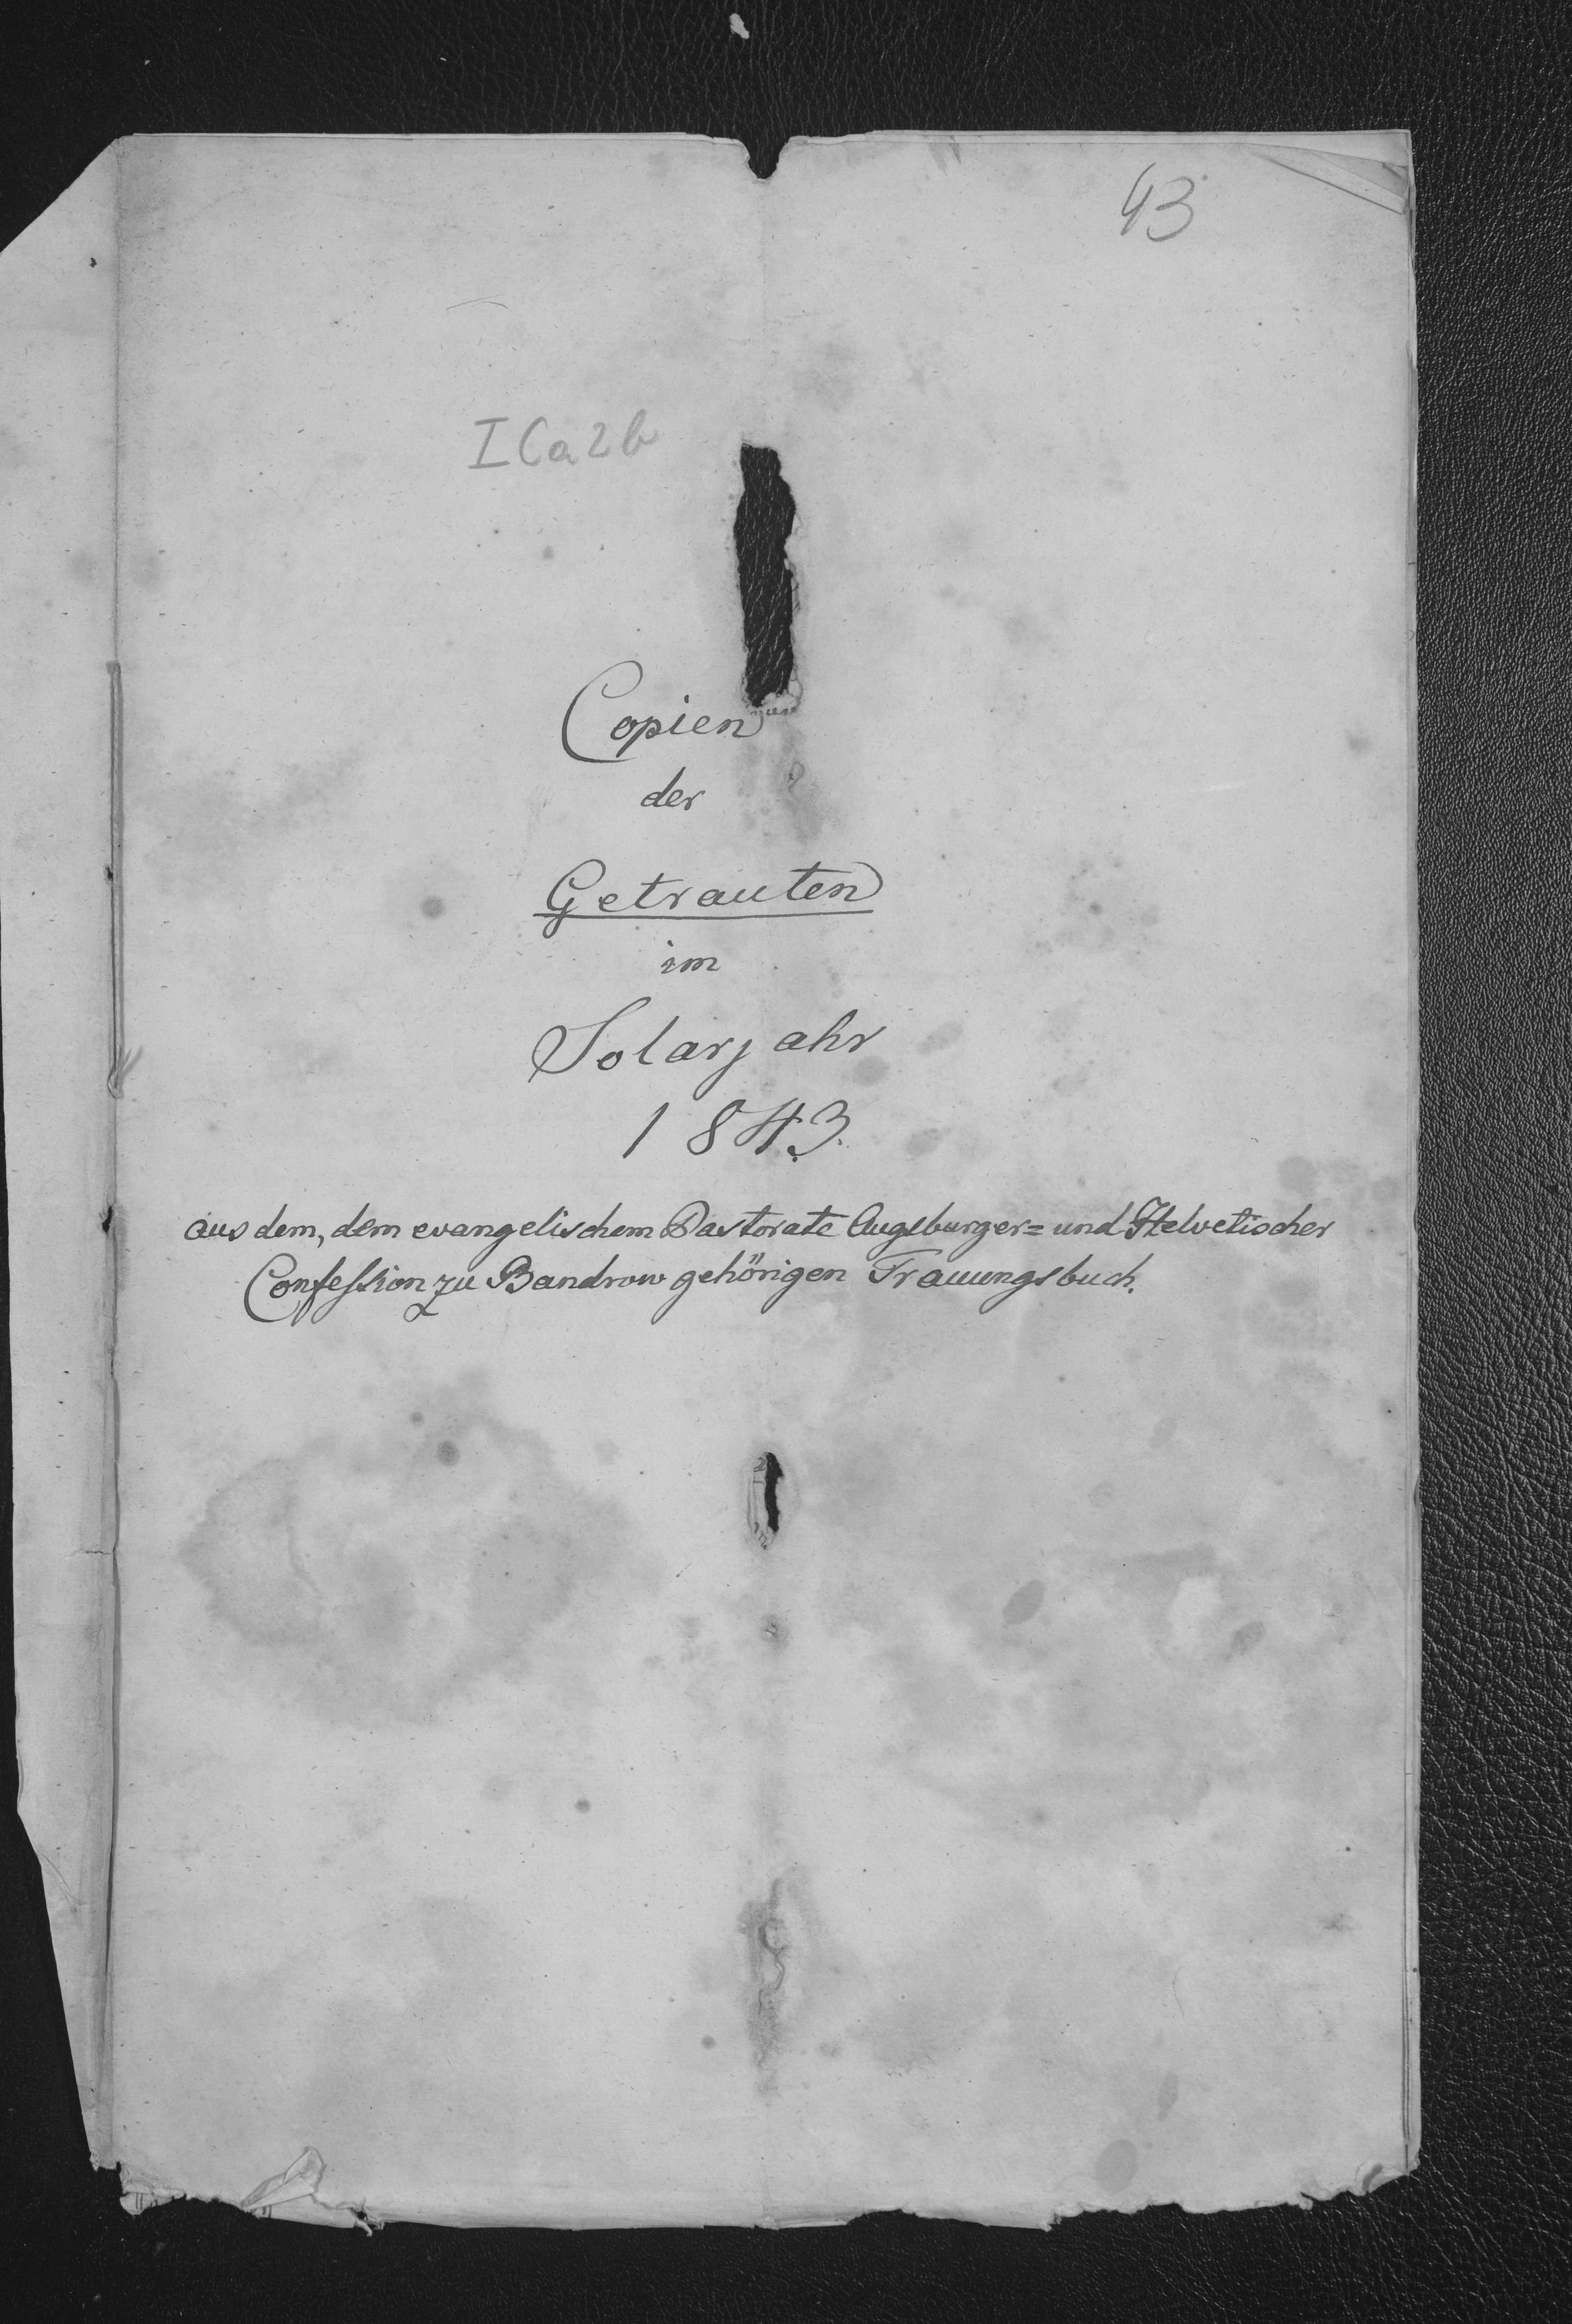 43
I Ca 2 b
Copien
der
Getrauten
im
Solarjahr
1843.
aus dem, dem evangelischem Pastorate Augsburger= und Helvetischer
Confession zu Bandrow gehörigen Trauungsbuch.